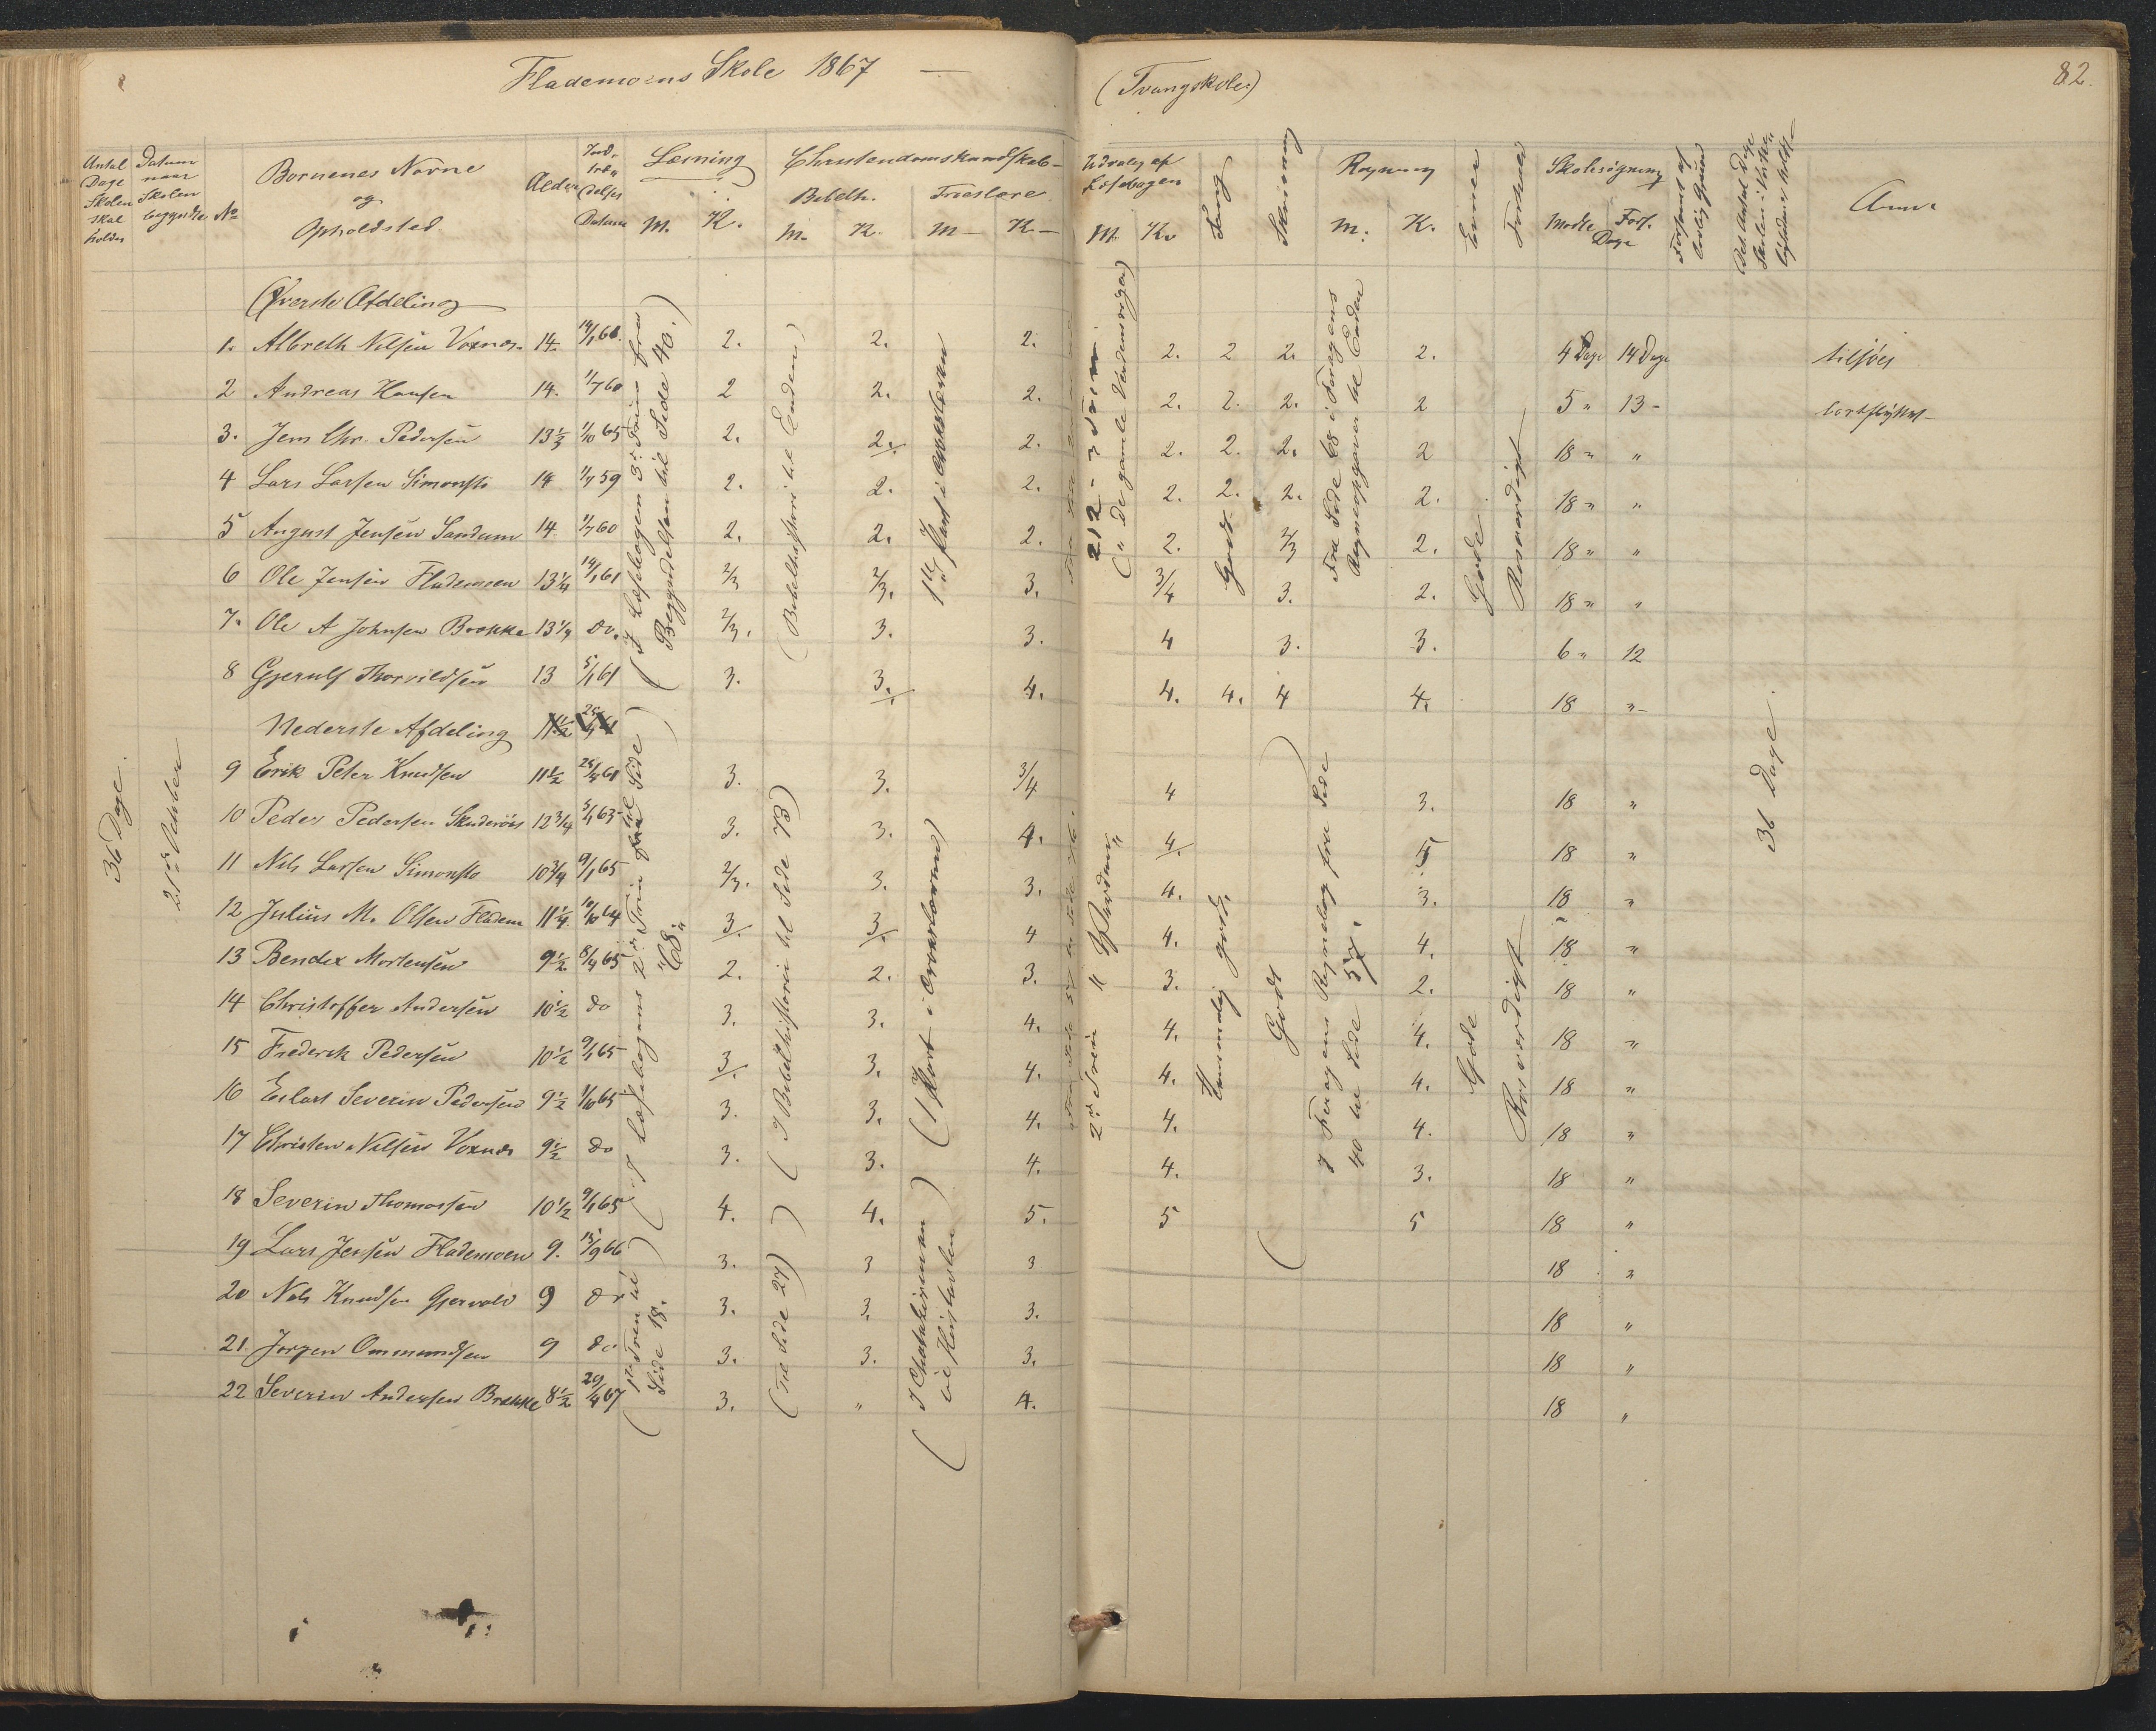 Flademoens Skole 1867 —
(Tvangskole)
82.
Antal Dage Skolen skal holdes
Datum naar Skolen begyndte
No
Børnenes Navne og Opholdsted
Alder
Indtrædelses Datum
Læsning
M. K.
Christendomskundskab
Bibelh.
M. K.
Troeslære
M K
Udvalg af Læsebogen
M. K.
Sang
Skrivning
Regning
M. K.
Evner
Forhold
Skolesøgning
Mødte Fors. Dage
Anm.
Øverste Afdeling
1. Albreth Nilsen Voxnæs 14 14/1 60. 2. 2. 2. 2. 2 2. 2. 4 Dage 14 Dage tilsjøes
2 Andreas Hansen 14. 1/7 60 2 2. 2. 2. 2. 2. 2 5 " 13 - bortflyttet
3. Jens Chr. Pedersen 13½ 1/10 65 2. 2. 2. 2. 2. 2. 2 18 " "
4 Lars Larsen Simonstø 14 1/7 59 2. 2. 2. 2. 2. 2. 2. 18 " "
5 August Jensen Sandum 14 1/7 60 2. 2. 2. 2. 2/3 2. 18 " "
6 Ole Jensen Flademoen 13¼ 14/1 61 2/3 2/3. 3. 3/4 3. 2. 18 " "
7. Ole A Johnsen Brække 13¼ do. 2/3. 3. 3. 4 3. 3. 6 " 12
8 Gjerulf Thorvildsen 13 5/1 61 3. 3. 4. 4. 4. 4 4. 18 "
Nederste Afdeling
9 Erik Peter Knudsen 11½ 25/4 61 3. 3. 3/4 4 3. 18 "
10 Peder Pedersen 12¾ 5/1 63 3. 3. 4. 4. 5 18 "
11 Nils Larsen Simonstø 10¾ 9/1 65 2/3. 3. 3. 4. 3. 18 "
12 Julius M. Olsen Fladem 11¼ 10/10 64 3. 3. 4 4. 4. 18 "
13 Bendix Mortensen 9½ 8/4 65 2. 2. 3. 3. 2. 18 "
14 Christoffer Andersen 10½ do 3. 3. 4. 4. 4. 18 "
15 Frederik Pedersen 10½ 9/1 65 3. 3. 4. 4. 4. 18 "
16 Eilart Severin Pedersen 9½ 1/10 65 3. 3. 4. 4. 4. 18 "
17 Christen Nilsen Voxnæs 9½ do 3. 3. 4. 4. 3. 18 "
18 Severin Thomassen 10½ 9/1 65 4. 4. 5. 5 5 18 "
19 Lars Jensen Flademoen 9. 15/9 66 3. 3 3 18 "
20 Nels Knudsen Gjervold 9 do 3. 3. 3. 18 "
21. Jørgen Ommundsen 9 do 3. 3. 3. 18 "
22 Severin Andersen Brække 8½ 29/4 67 3. " 4. 18 "
36 Dage.
21de October
(I Læsebogen 3die Trin fra Begyndelsen til Side 40.)
(Bibelhistorie til Enden)
("De gamle Verdensriger)
Godt
Fra Side 68 i Fergens Regneopgaver til Enden
Gode
Rosværdigt
(I Læsebogens 2det Trin til Side 68."
(I Bibelhistorie til Side 73)
2det Trin " Verden"
Godt
I Fergens Regnebog fra Side 40 til Side 57.
Gode
Rosværdigt
36 Dage
(1ste Trin til Side 18.)
(til Side 27)